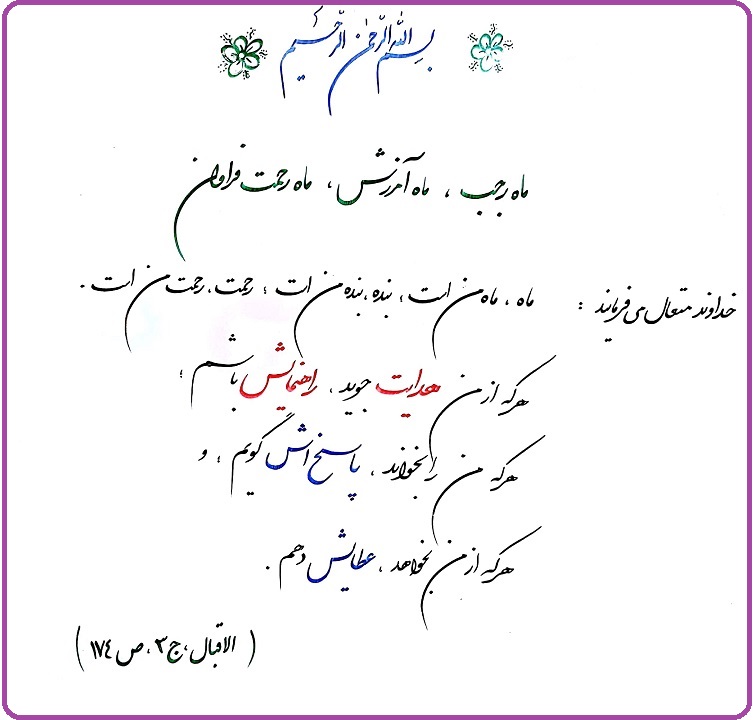 بسم الله الرحمن الرحیم
ماه رجب ، ماه آمرزش ، ماه رحمت فراوان
خداوند متعال می فرماید : ماه ، ماه من است ؛ بنده ، بنده من است ؛ رحمت ، رحمت من است .
هرکه از من هدایت جوید ، راهنمایش باشم ؛
هرکه من را بخواند ، پاسخ اش گویم ؛ و
هرکه از من بخواهد ، عطایش دهم .
( الاقبال ، ج ۳ ، ص ۱۷٤ )